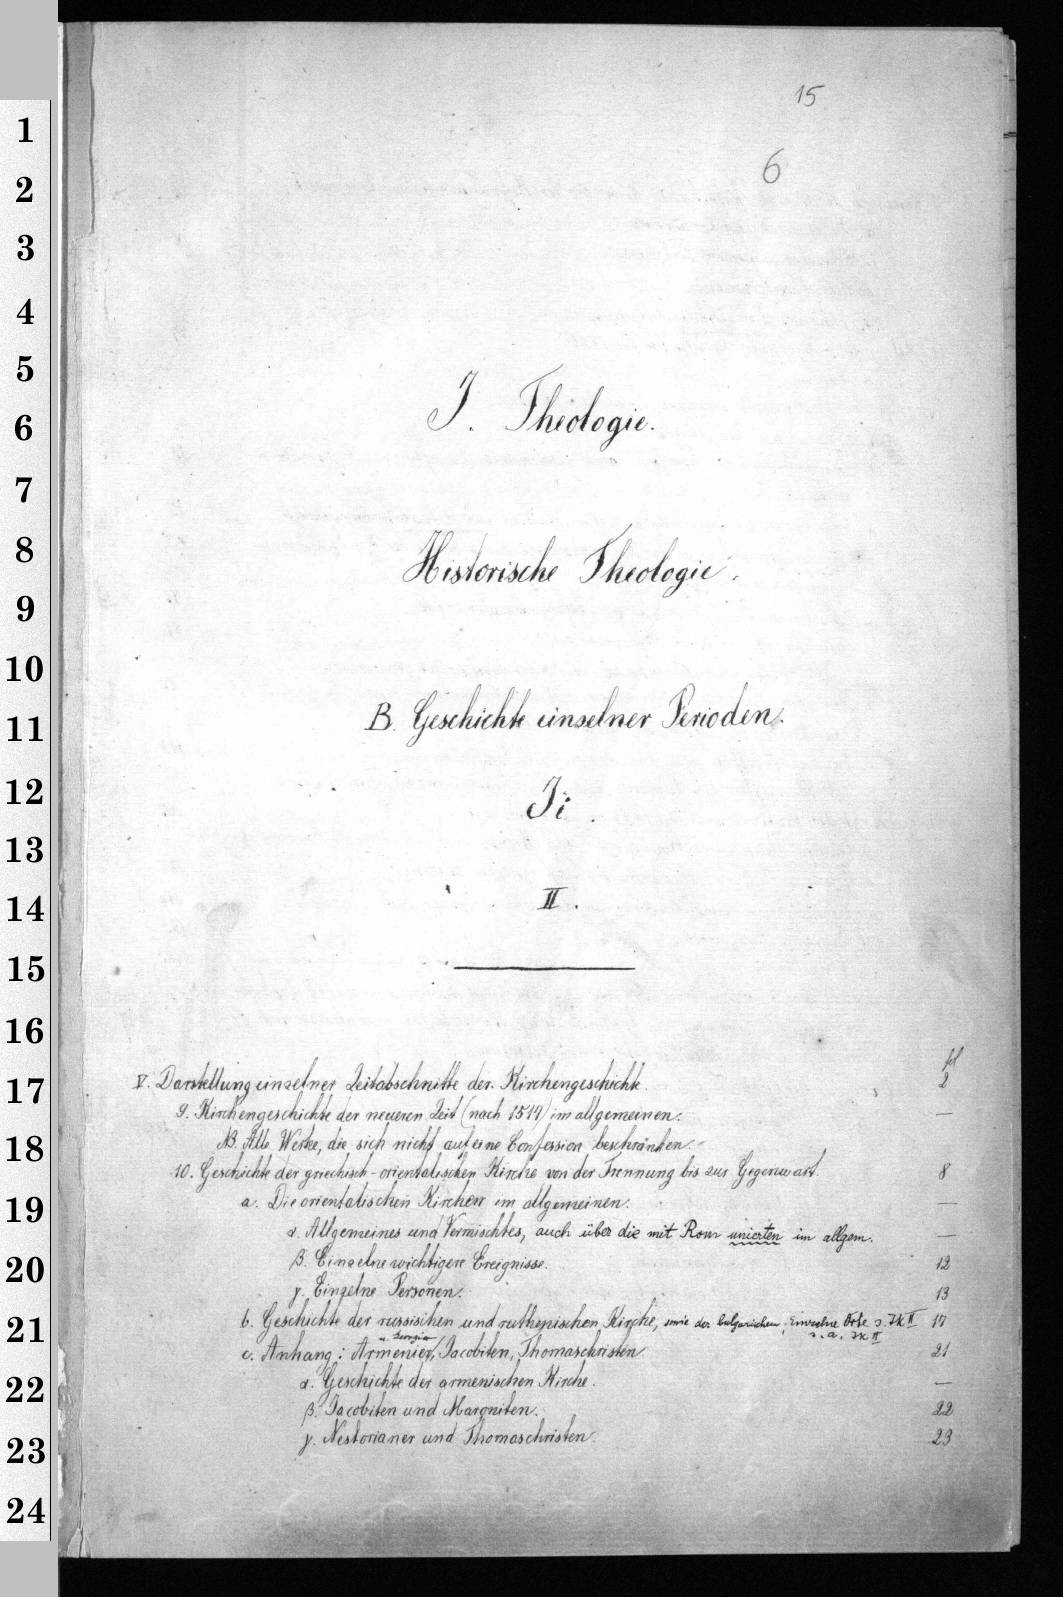 15
6
1
2
3
4
5
6
7
8
9
10
11
12
13
14
15
16
17
18
19
20
21
22
23
24
I. Theologie.
Historische Theologie.
B. Geschichte einzelner Perioden.
Ii.
II.
fol
V. Darstellung einzelner Zeitabschnitte der Kirchengeschichte. 2
9. Kirchengeschichte der neueren Zeit (nach 1517) im allgemeinen. —
NB. Alle Werke, die sich nicht auf eine Confession beschränken.
10. Geschichte der griechisch-orientalischen Kirche von der Trennung bis zur Gegenwart. 8
a. Die orientalischen Kirchen im allgemeinen. —
α. Allgemeines und Vermischtes, auch über die mit Rom unierten im allgem. —
β. Einzelne wichtigere Ereignisse. 12
γ. Einzelne Personen. 13
b. Geschichte der russischen und ruthenischen Kirche, sowie der bulgarischen; Einzelne Orte s. IK II 17
s. a. IK II
c. Anhang: Armenier, Jacobiten, Thomaschristen. 21
α. Geschichte der armenischen Kirche. —
β. Jacobiten und Maroniten. 22
γ. Nestorianer und Thomaschristen. 23